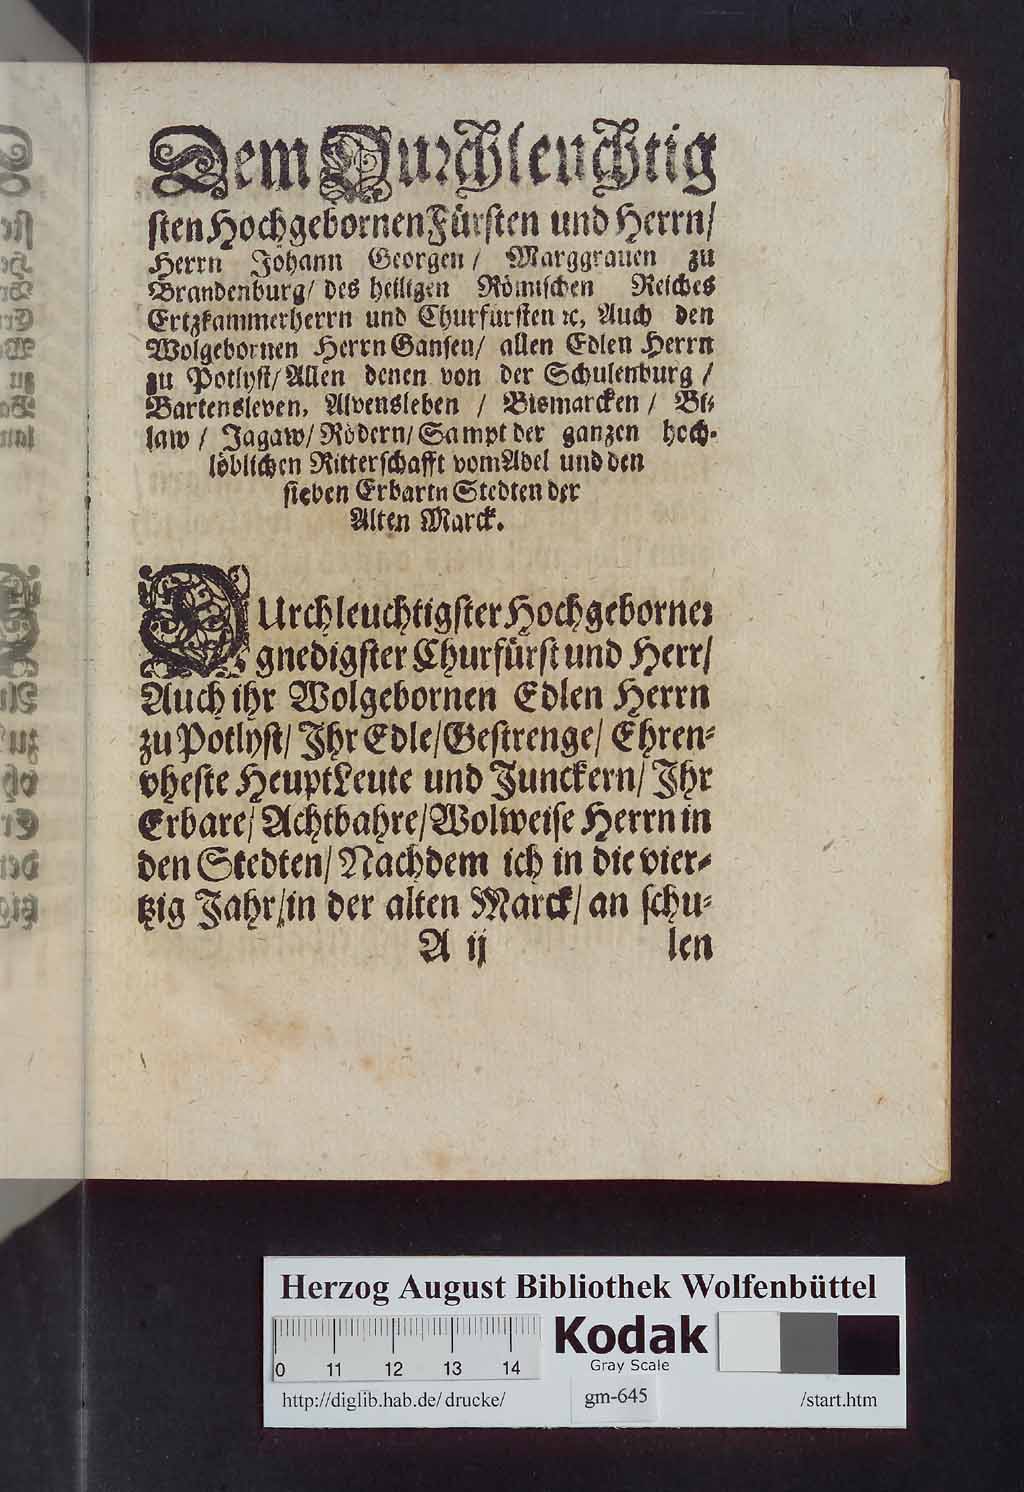 Dem Durchleuchtig
sten Hochgebornen Fürsten und Herrn/
Herrn Johann Georgen/ Marggrauen zu
Brandenburg/ des heiligen Römischen Reiches
Ertzkammerherrn und Churfürsten ꝛc, Auch den
Wolgebornen Herrn Gansen/ allen Edlen Herrn
zu Potlyst/ Allen denen von der Schulenburg /
Bartensleven, Alvensleben / Bismarcken / Bi⸗
law / Jagaw/ Rödern/ Sampt der ganzen hoch⸗
löblichen Ritterschafft vom Adel und den
sieben Erbarn Stedten der
Alten Marck.
DUrchleuchtigster Hochgeborner
gnedigster Churfürst und Herr/
Auch ihr Wolgebornen Edlen Herrn
zu Potlyst/ Ihr Edle/ Gestrenge/ Ehren⸗
vheste HeuptLeute und Junckern/ Ihr
Erbare/ Achtbahre/ Wolweise Herrn in
den Stedten/ Nachdem ich in die vier⸗
tzig Jahr/ in der alten Marck/ an schu⸗
A ij len
Herzog August Bibliothek Wolfenbüttel
0 11 12 13 14
Kodak
Gray Scale
http://diglib.hab.de/drucke/ gm-645 /start.htm